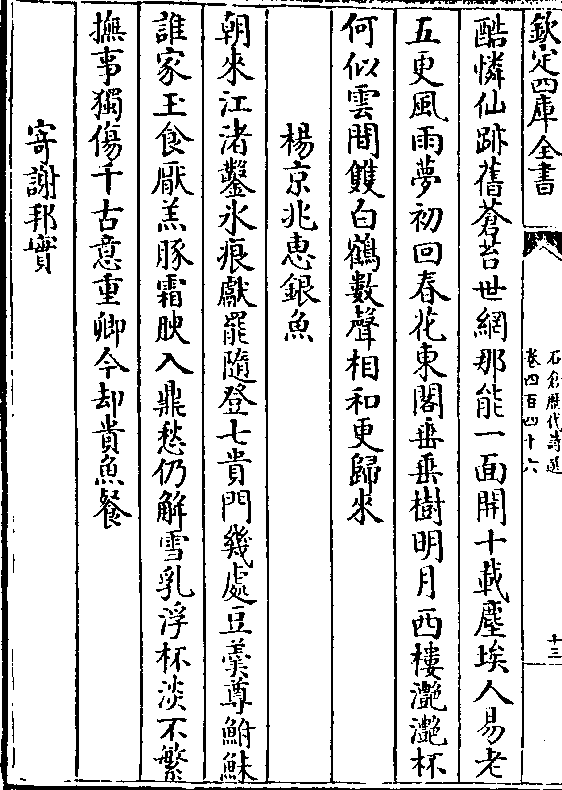 欽定四庫全書
石倉歷代詩選
卷四百四十六
十三
酷憐仙跡舊蒼苔世網那能一面開十載塵埃人易老
五更風雨夢初回春花東閣垂垂樹明月西樓灧灧杯
何似雲間雙白鶴數聲相和更歸來
楊京兆惠銀魚
朝來江渚鑿氷痕獻罷隨登七貴門幾處豆羹尊鮒鮇
誰家玉食厭羔豚霜腴入鼎愁仍解雪乳浮杯淡不繁
撫事獨傷千古意重卿今却貴魚餐
寄謝邦實